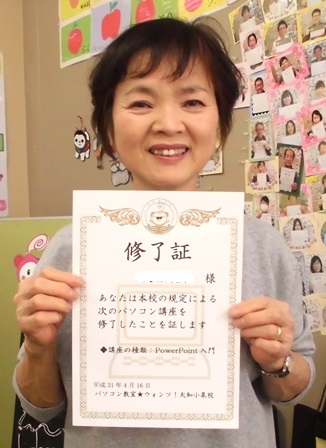 修了証
様
あなたは本校の規定による
次のパソコン講座を
修了したことを証します
◆講座の種類：PowerPoint 入門
平成31年4月16日
パソコン教室★ウォンツ！大和小泉校